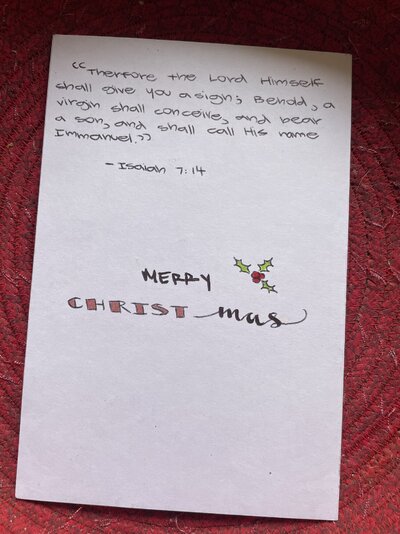 “Therfore the Lord Himself
shall give you a sign; Behold, a
virgin shall conceive, and bear
a son, and shall call His name
Immanuel.”
- Isaiah 7:14
MERRY
CHRISTmas